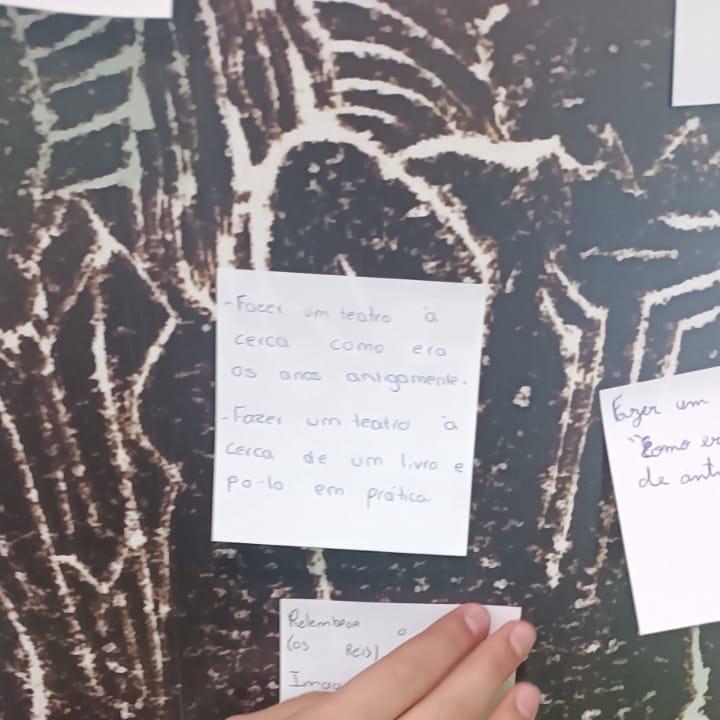 -Fazer um teatro à
cerca como era
os anos antigamente.
-Fazer um teatro à
cerca de um livro e
po-lo em prática
Fazer um
"Como er
de ant
Relembrar o
(os Reis)
Imag